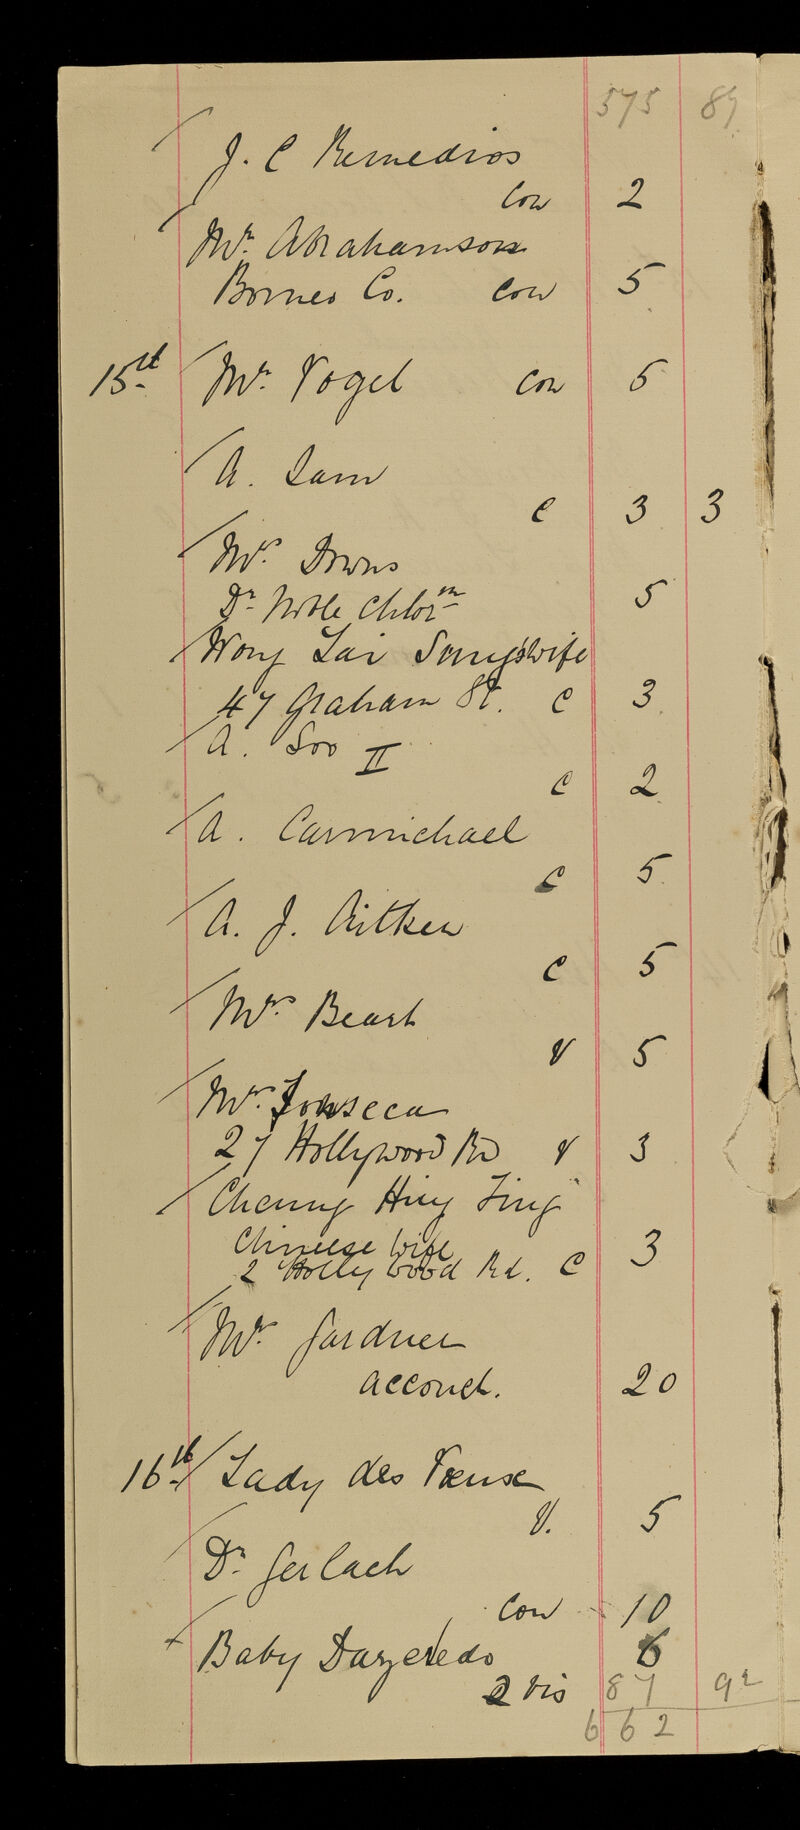 575 89
J. C Remedios
Con 2
Mr. Abrahamson
Borneo Co. Con 5
15th Mr. Vogel Con 5
A. Lam
C 3 3
Mrs. Downs
Dr. Noble Chlorm 5
Wong Lai Sung's wife
47 Graham St. C 3
A. Soo II
C 2
A. Carmichael
C 5
A. J. Aitken
C 5
Mrs. Beart
V 5
Mr. Fonseca
27 Hollywood Rd V 3
Cheung Hing Ting
Chineese Wife 3
2 Hollywood Rd. C
Mr. Gardner
accouch. 20
16th Lady des Vœux
V. 5
Dr. Gerlach
Con 10
Baby Dazevedo 6
2 vis 87 92
662